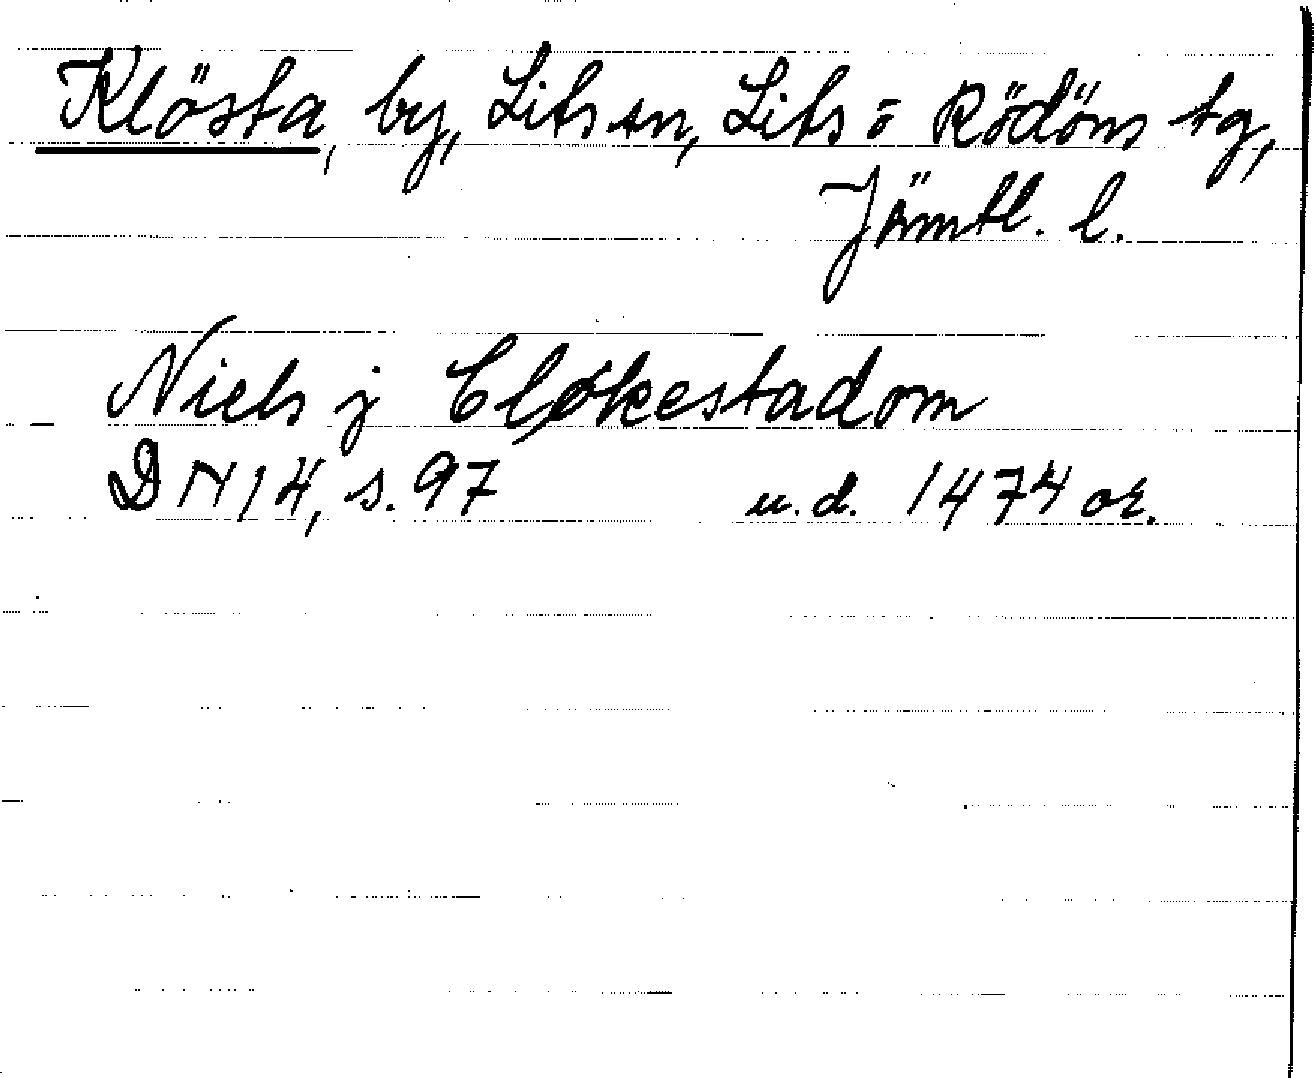 Klösta, by, Lits sn, Lits o Rödöns tg,
Jämtl. l.
Niels j Cløkestadom
DN 14, s. 97 u.d. 1474 or.